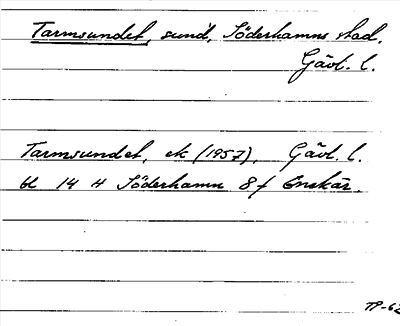 Tarmsundet, sund, Söderhamns stad.
Gävl. l.
Tarmsundet, ek (1957), Gävl. l.
bl 14 H Söderhamn 8 f Enskär.
TP-62